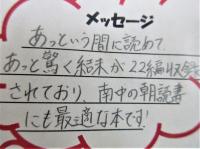 メッセージ
あっという間に読めて
あっと驚く結末が22編収録
されており、南中の朝読書
にも最適な本です!